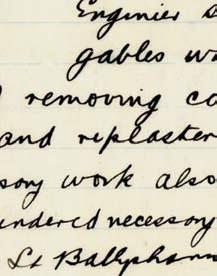 Enginier
gables w
removing co
and replaster
sory work also
undered necessary
St Ballyphann